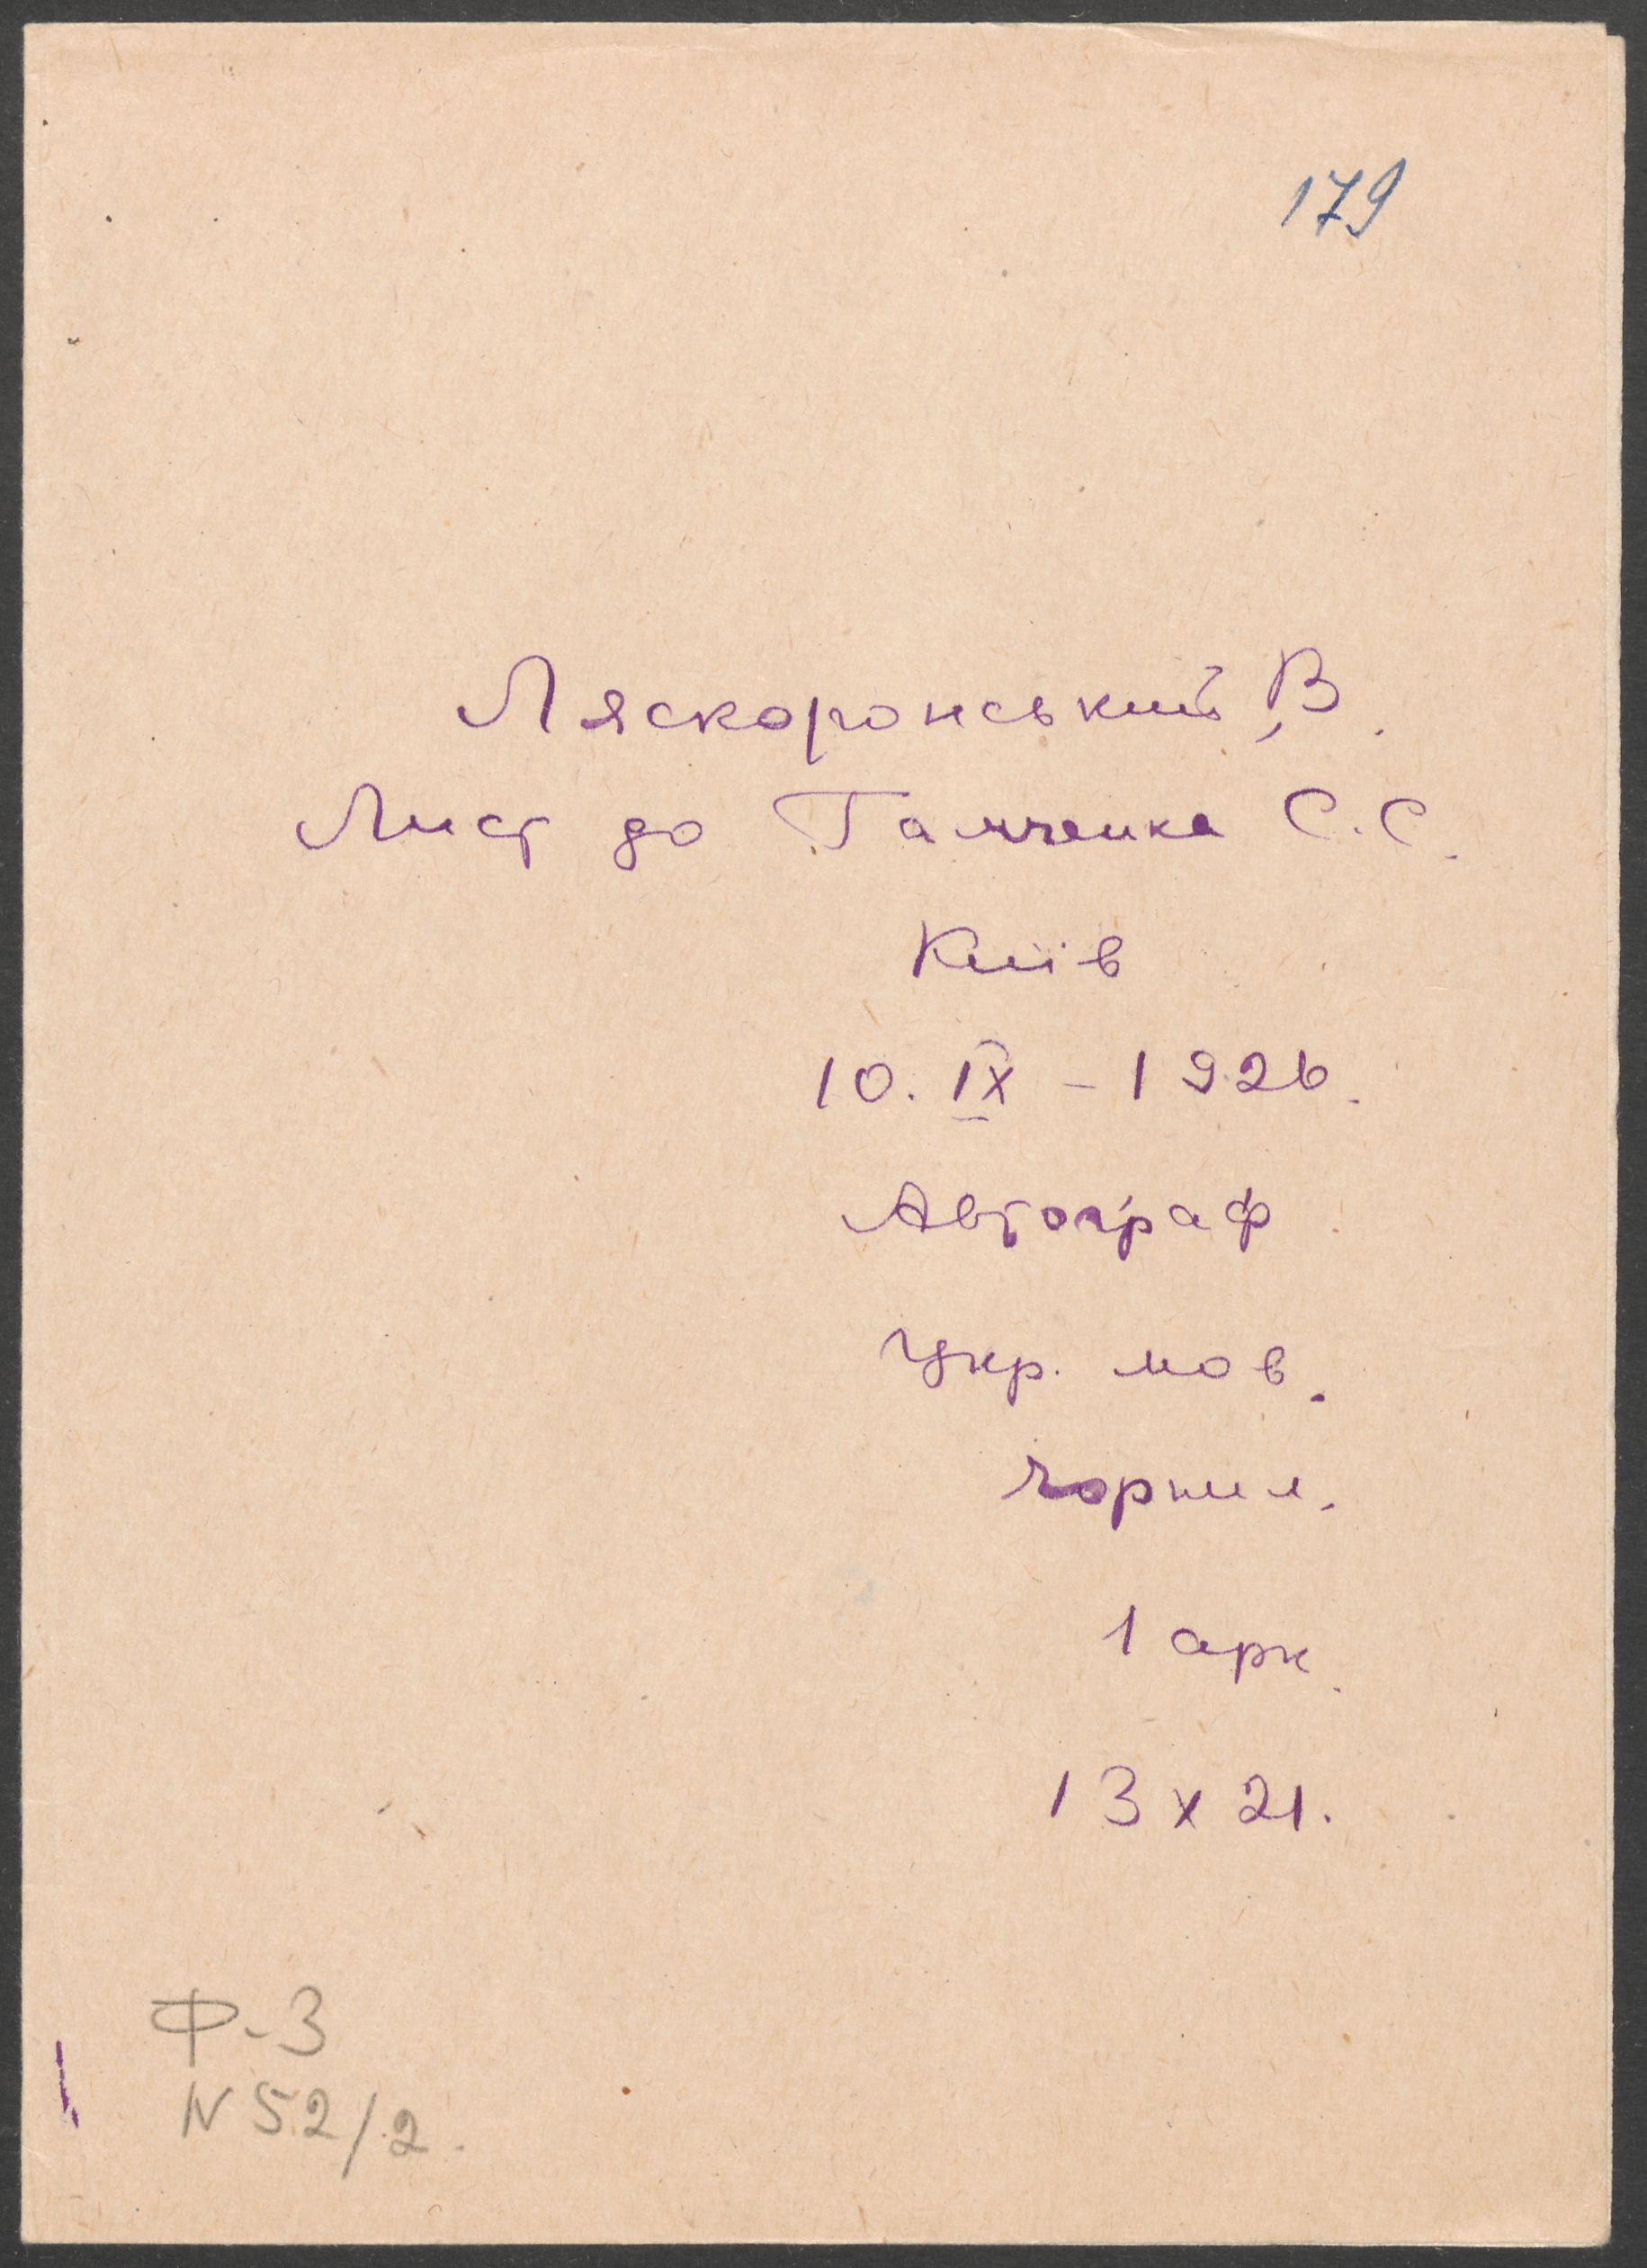 179
Ляскоронський, В.
Лист до Гамченка С.С.
Київ
10. IX – 1926.
Автограф
Укр. мов.
чорнил.
1 арк.
13 х 21.
Ф-3
N 52/2.